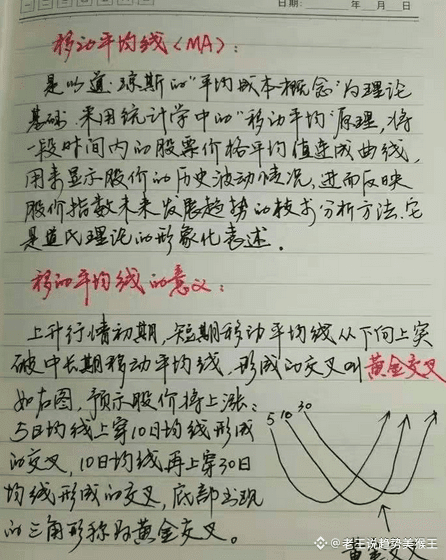 日期: 年 月 日
移动平均线(MA):
是以道·琼斯的“平均成本概念”为理论
基础,采用统计学中的“移动平均”原理,将
一段时间内的股票价格平均值连成曲线,
用来显示股价的历史波动情况,进而反映
股价指数未来发展趋势的技术分析方法.它
是道氏理论的形象化表述。
移动平均线的意义:
上升行情初期,短期移动平均线从下向上突
破中长期移动平均线,形成的交叉叫黄金交叉
如右图,预示股价将上涨:
5日均线上穿10日均线形成
的交叉,10日均线再上穿30日
均线形成的交叉,底部出现
的三角形称为黄金交叉。
5 10 30
黄金交叉
@老王说趋势美猴王